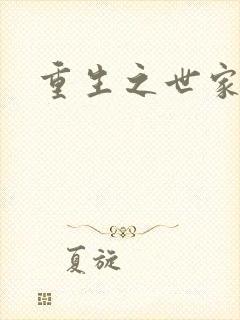 重生之世家
夏旋